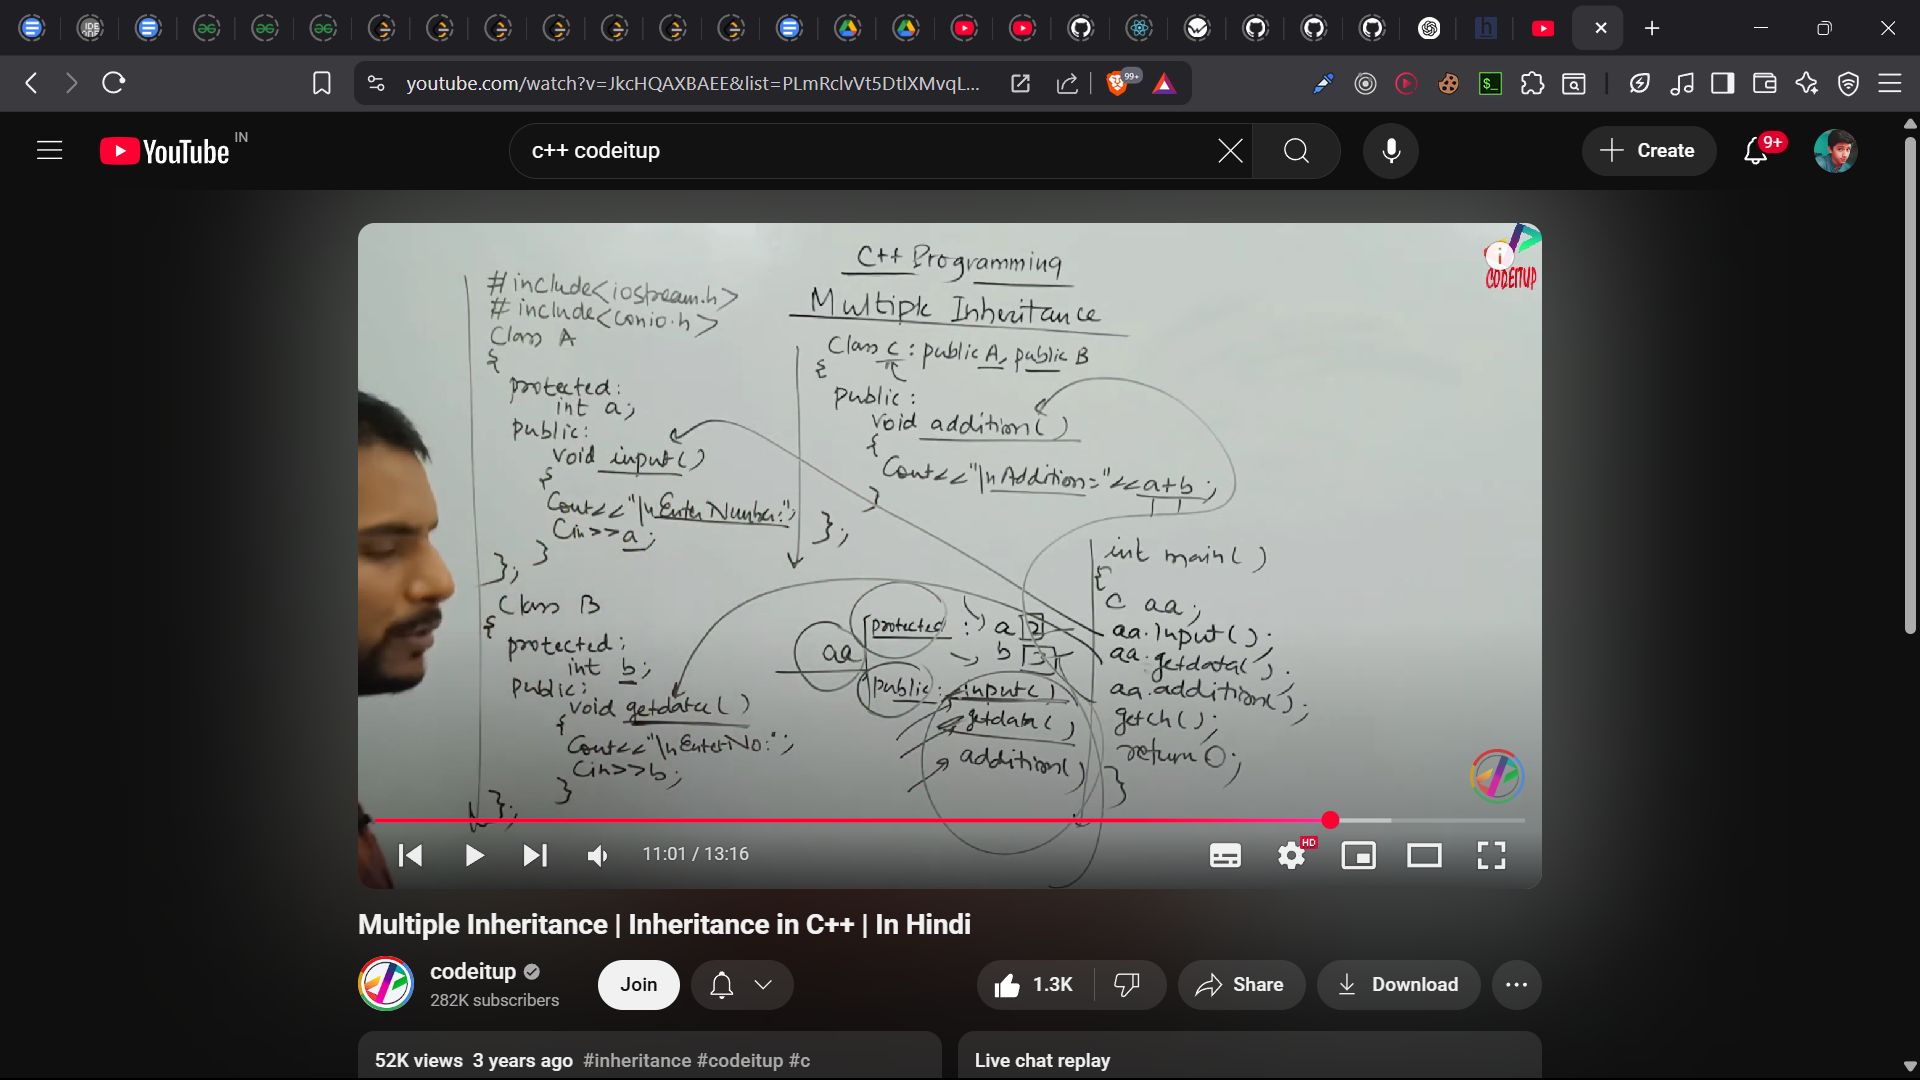 youtube.com/watch?v=JkcHQAXBAEE&list=PLmRclvVt5DtlXMvqL...
99+
YouTube IN
c++ codeitup
Create
9+
C++ Programming
Multiple Inheritance
CODEITUP
#include<iostream.h>
#include<conio.h>
Class A
{
protected:
int a;
public:
void input()
{
Cout<<"\nEnter Number:";
Cin>>a;
}
};
Class B
{
protected:
int b;
public:
void getdata()
{
Cout<<"\nEnter No:";
Cin>>b;
}
};
Class C : public A, public B
{
public:
void addition()
{
Cout<<"\nAddition="<<a+b;
}
};
aa
protected : a 2
b 3
public : input()
getdata()
addition()
int main()
{
C aa;
aa.input();
aa.getdata();
aa.addition();
getch();
return 0;
}
11:01 / 13:16
HD
Multiple Inheritance | Inheritance in C++ | In Hindi
codeitup
282K subscribers
Join
1.3K
Share
Download
52K views 3 years ago #inheritance #codeitup #c
Live chat replay